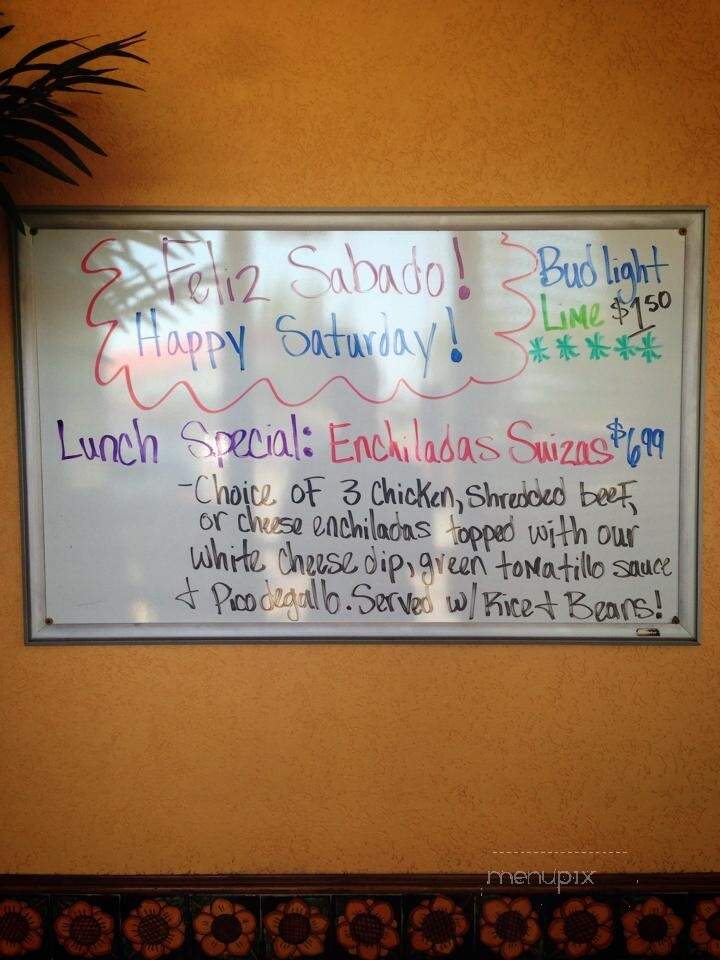 Feliz Sabado!
Happy Saturday!
Bud light
Lime $1.50
*****
Lunch Special: Enchiladas Suizas $6.99
-Choice of 3 chicken, shredded beef,
or cheese enchiladas topped with our
white cheese dip, green tomatillo sauce
+ Pico degallo. Served w/ Rice + Beans!
menupix